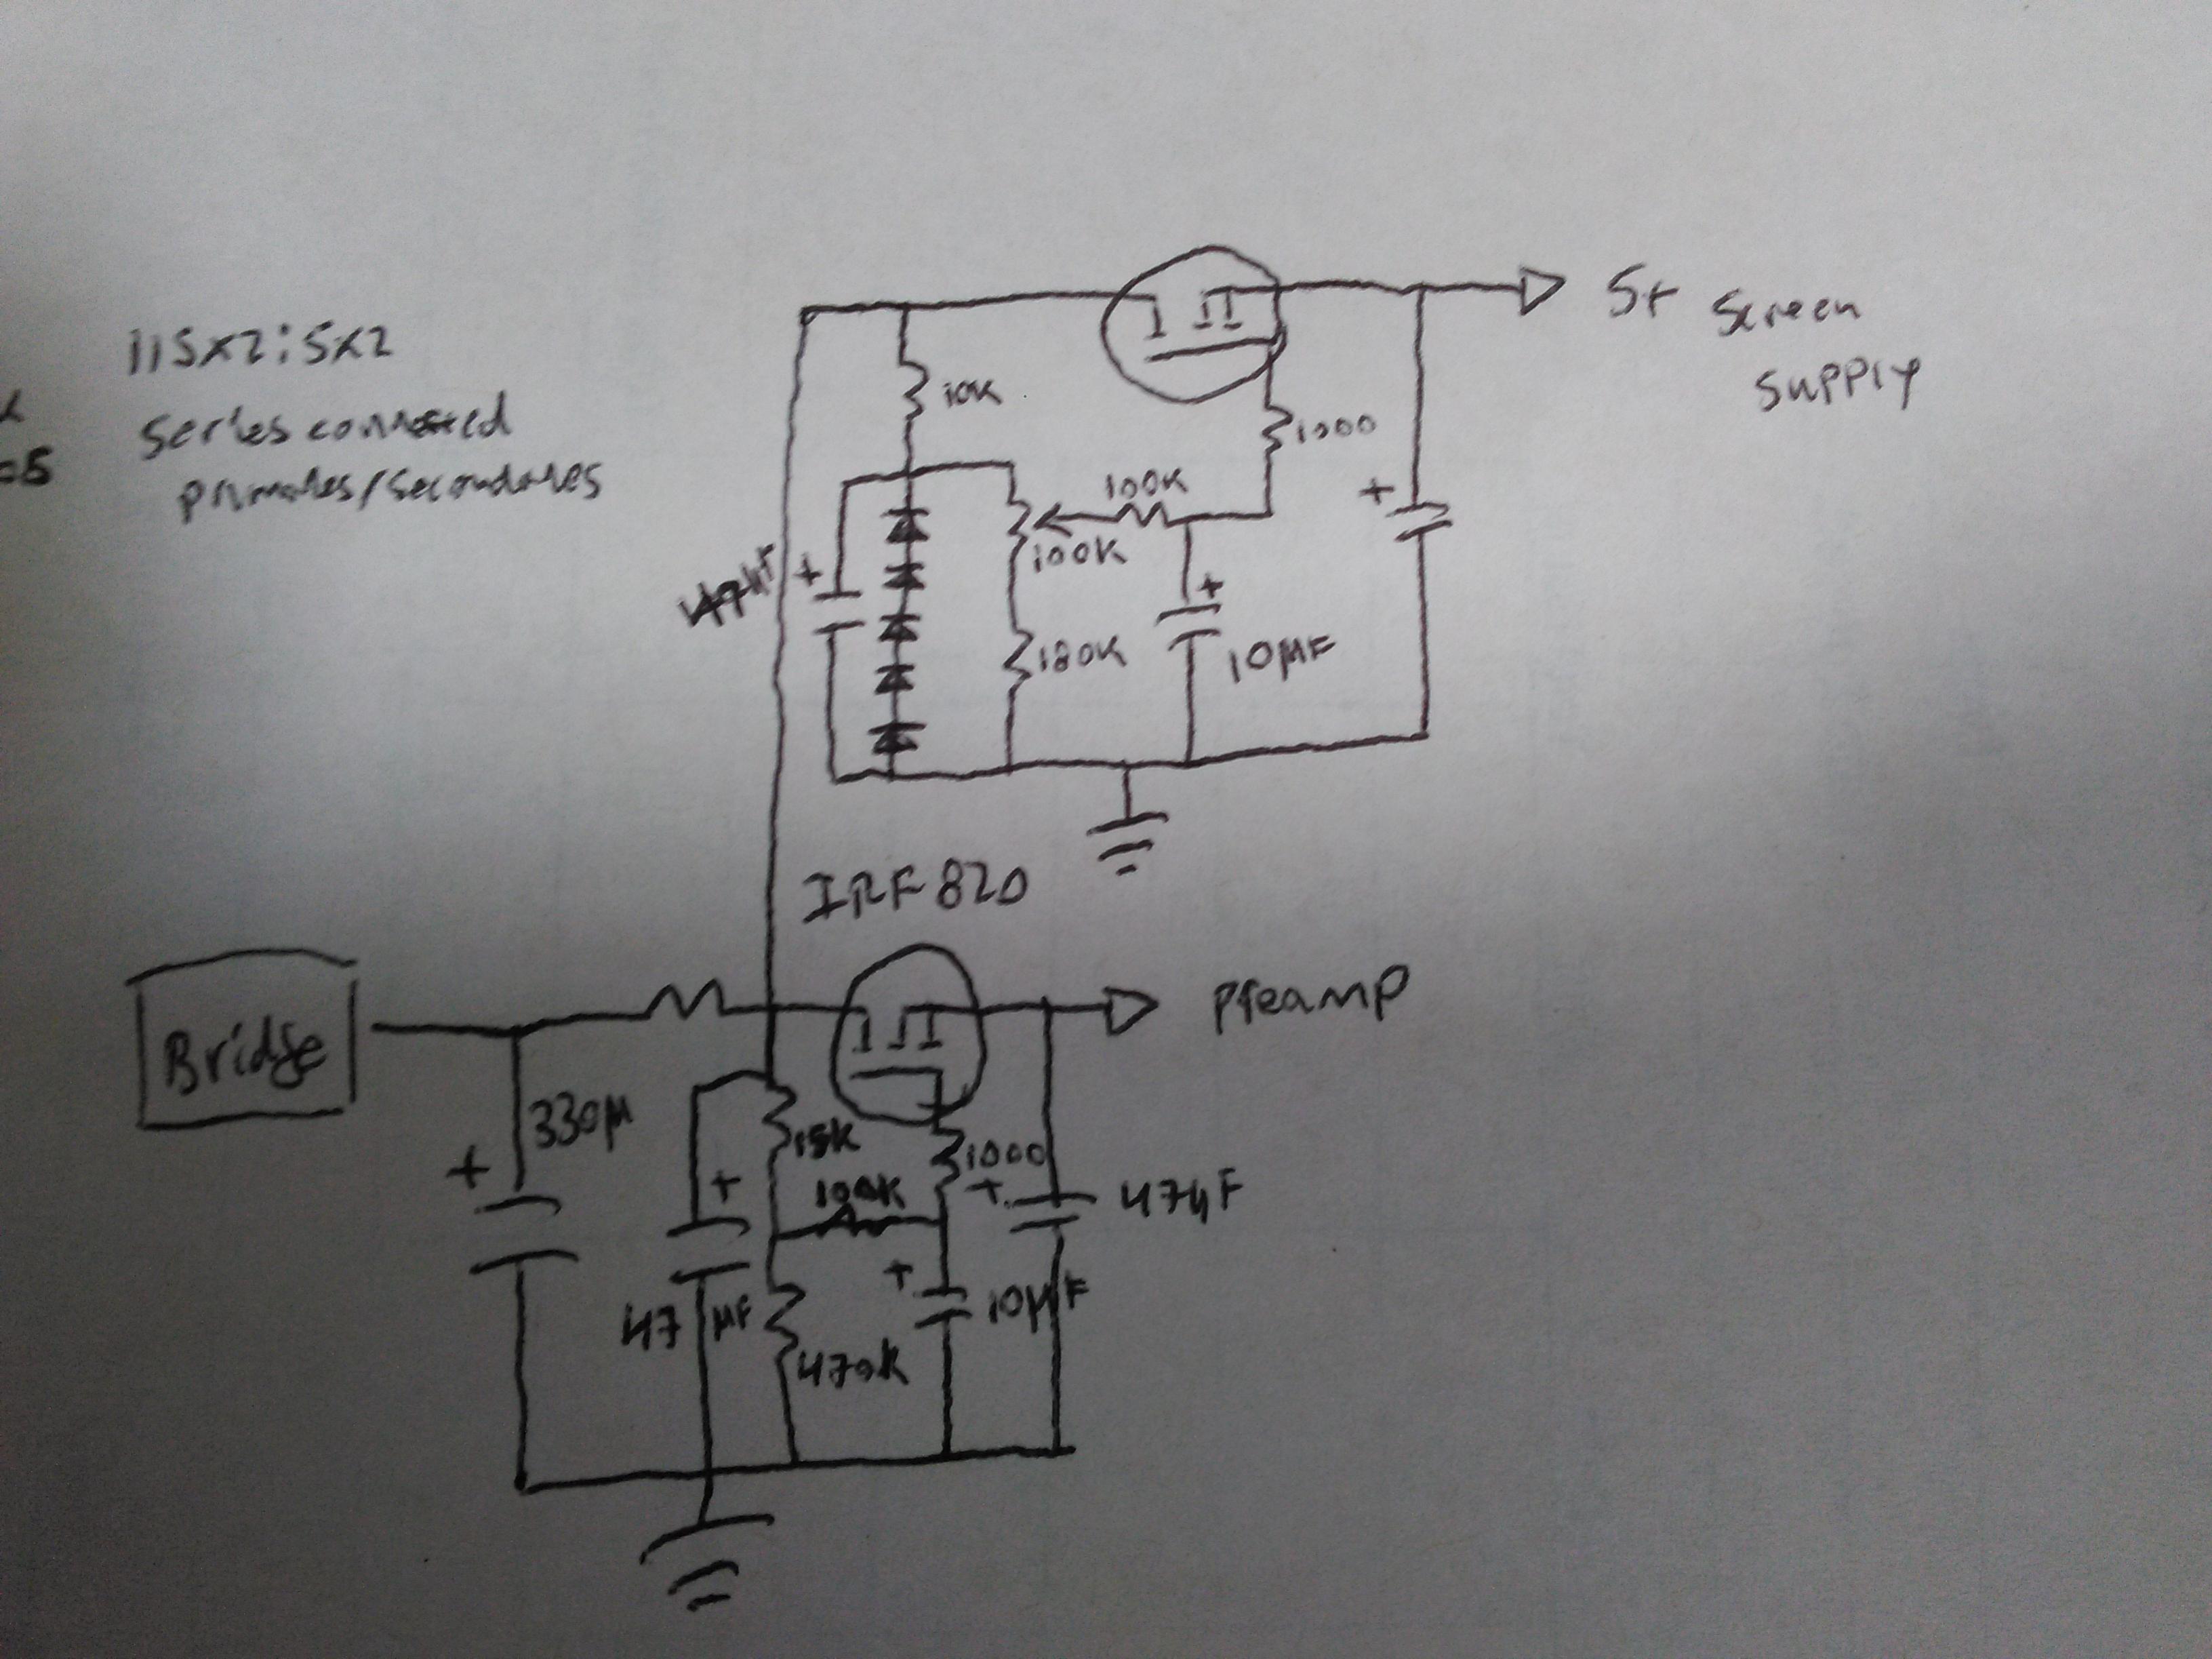 115x2:5x2
series connected
primaries/secondaries
=8
S+ Screen
supply
10K
1000
100K
100K
+
47µF +
+
180K
10µF
IRF820
Preamp
Bridge
330µ
15K
1000
+
+
100K
+
47µF
+
10µF
47 µF
470K